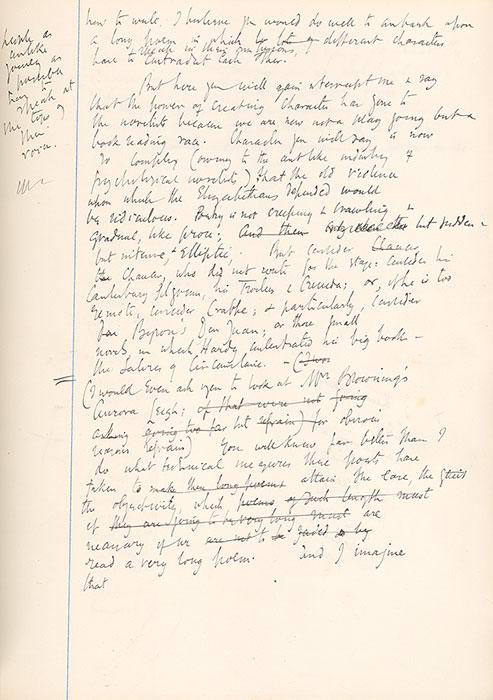 people as
unlike
yourself as
possible
have to
speak at
the top of
their
voice.
how to write, I believe you would do well to embark upon
a long poem in which lots of different characters
& speak in their own persons,
have to contradict each other.
But here you will again interrupt me & say
that the power of creating character has gone to
the novelists because we are now not a play going but a
book reading race. Character you will say is now
so complex (owing to the antlike industry of
psychological novelists) that the old violence
upon which the Elizabethans depended would
be ridiculous. Poetry is not creeping & crawling &
gradual, like prose; And then but sudden
but intense, & elliptic. But consider Chaucer
the Chaucer, who did not write for the stage: consider his
Canterbury Pilgrims, his Troilus & Cressida; or, if he is too
remote, consider Crabbe; & particularly, consider
Byron's Don Juan; or those small
novels in which Hardy concentrated his big book –
the Satires of Circumstance. –
(I would even ask you to look at Mrs Browning's
Aurora Leigh; if that were not going
asking going too far but refrain) for obvious
reasons refrain) You will know far better than I
do what technical measures these poets have
taken to make their long poems attain the ease, the
the objectivity, which poems of such length must
if they are going to be very long must are
necessary if we are not to be jaded by
read a very long poem. And I imagine
that